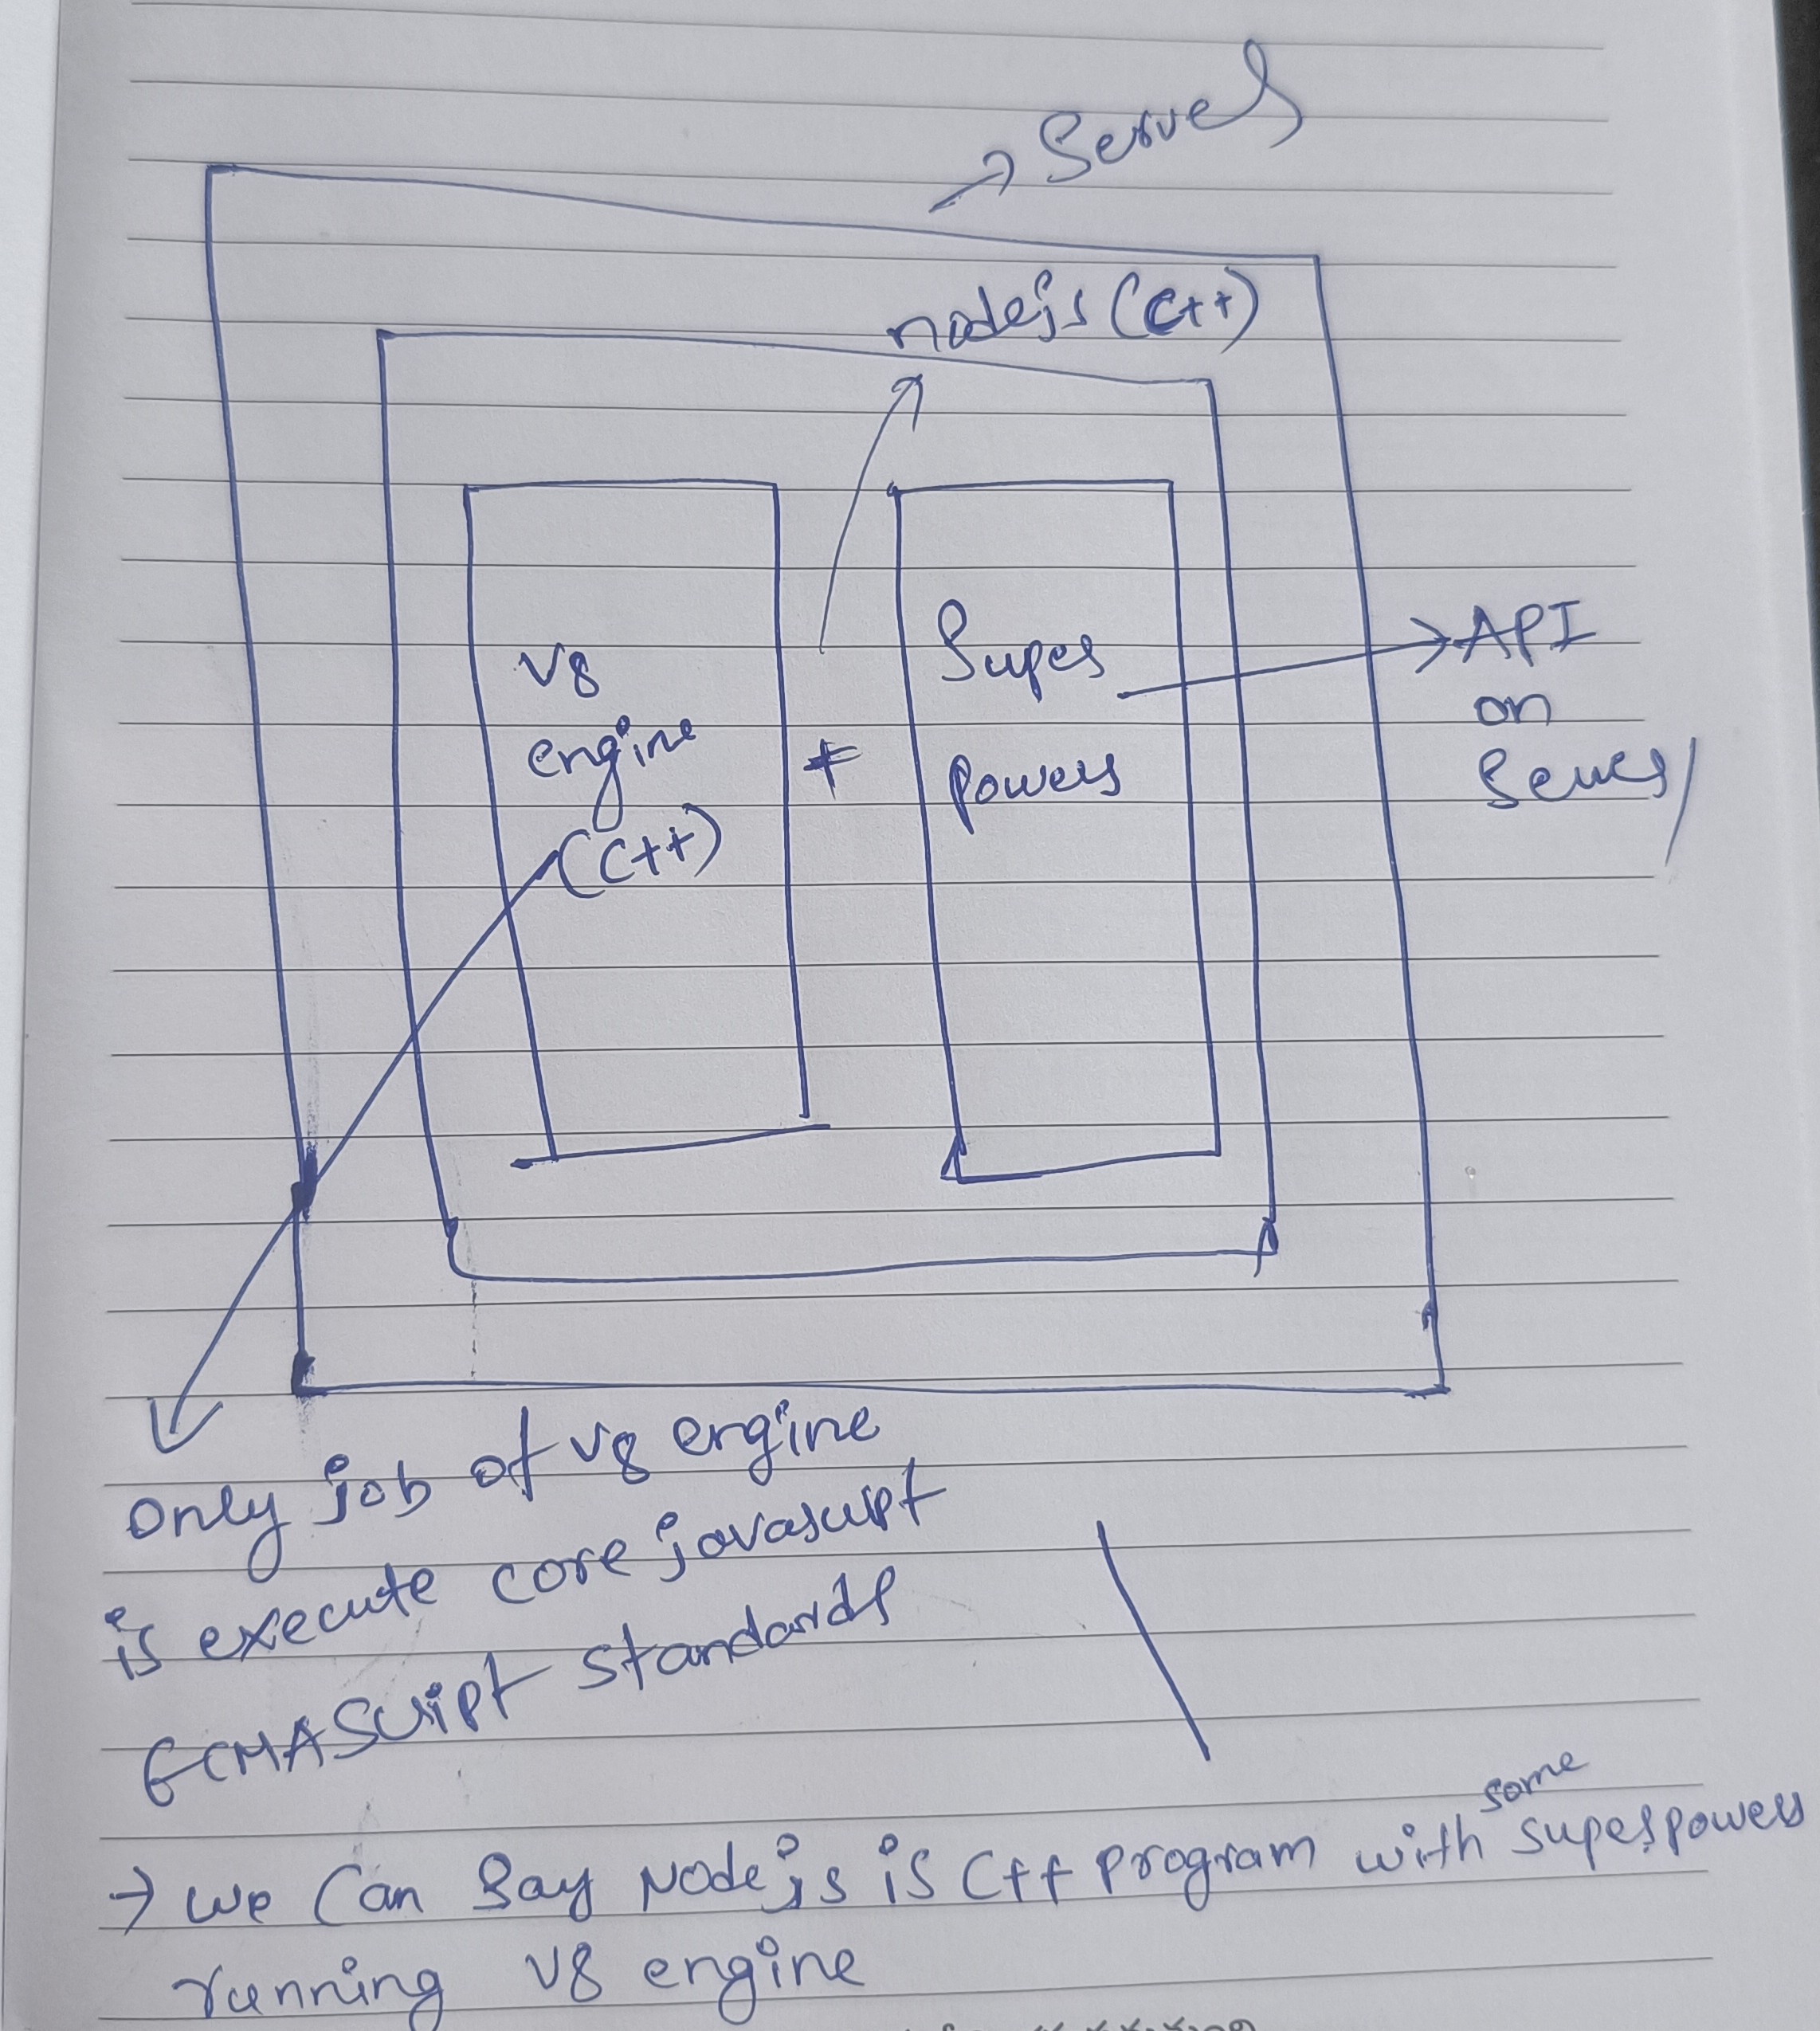 → Server
nodejs (C++)
V8
engine
(C++)
+
Super
powers
→ API
on
Server
only job of V8 engine
is execute core javascript
ECMAScript standards
→ we can say Nodejs is C++ program with some superpowers
running V8 engine